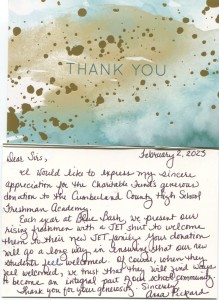 THANK YOU
February 2, 2023
Dear Sirs,
I would like to express my sincere
appreciation for the Charitable Fund's generous
donation to the Cumberland County High School
Freshman Academy.
Each year at Blue Bash, we present our
rising freshmen with a JET shirt to welcome
them to their new JET family. Your donation
will go a long way in ensuring that our new
students feel welcomed. Of course, when they
feel welcomed, we trust that they will find ways
to become an integral part of our school community.
Thank you for your generosity. Sincerely,
Anna Pickard